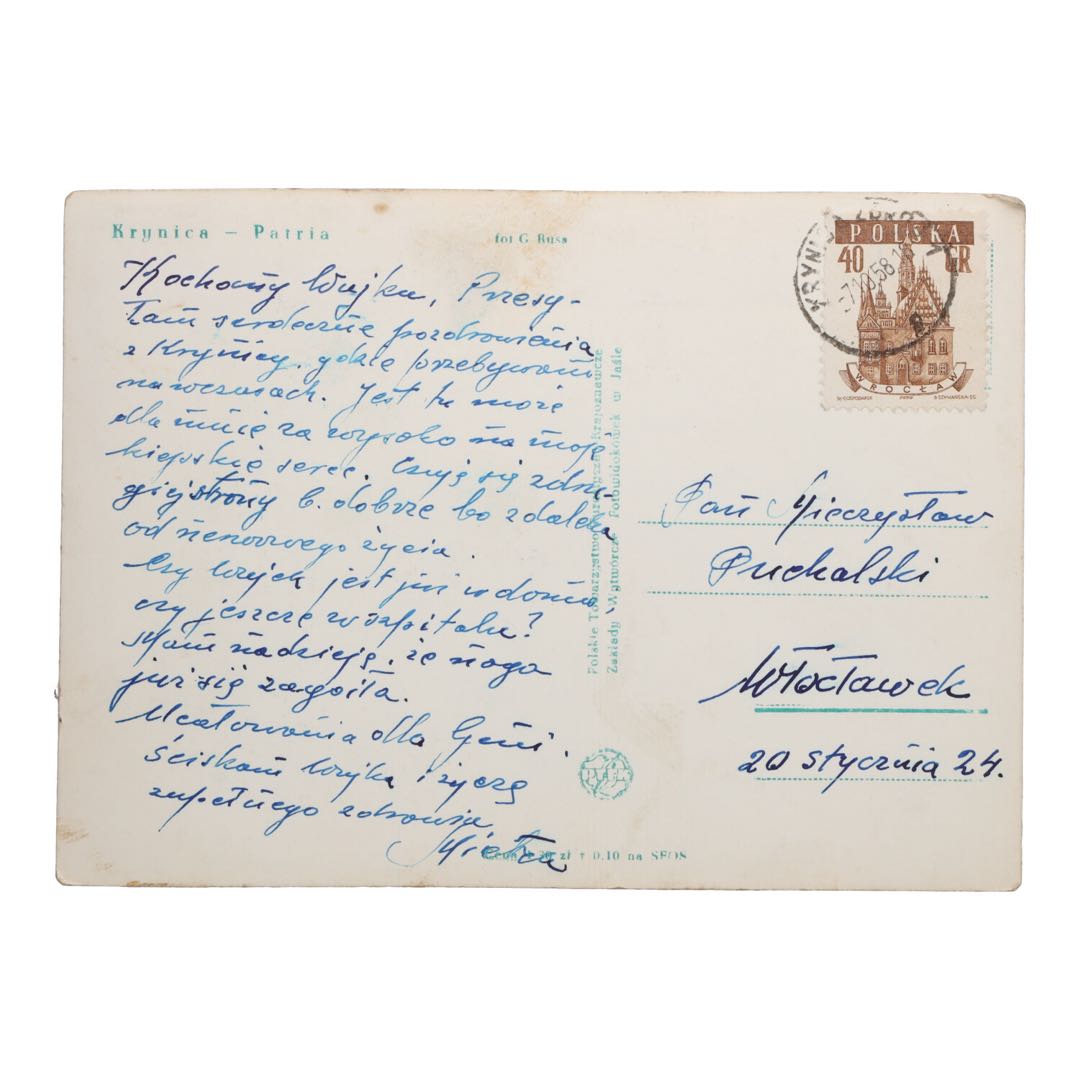 Krynica – Patria
fot G Russ
Kochany Wujku, Przesy-
łam serdeczne pozdrowienia
z Krynicy, gdzie przebywam
na wczasach. Jest tu może
dla mnie za wysoko na moje
kiepskie serce. Czuję się z dru-
giej strony b. dobrze bo z daleka
od nerwowego życia.
Czy Wujek jest już w domu,
czy jeszcze w szpitalu?
Mam nadzieję, że noga
już się zagoiła.
Ucałowania dla Geni.
Ściskam Wujka i życzę
zupełnego zdrowia
Mietka
Polskie Towarzystwo Turystyczno-Krajoznawcze
Zakłady Wytwórcze Fotowidokówek w Jaśle
PTTK
zł + 0.10 na SFOS
KRYNICA ZDRÓJ
-7.10.58
POLSKA
40 GR
WROCŁAW
Pan Mieczysław
Puchalski
Włocławek
20 stycznia 24.